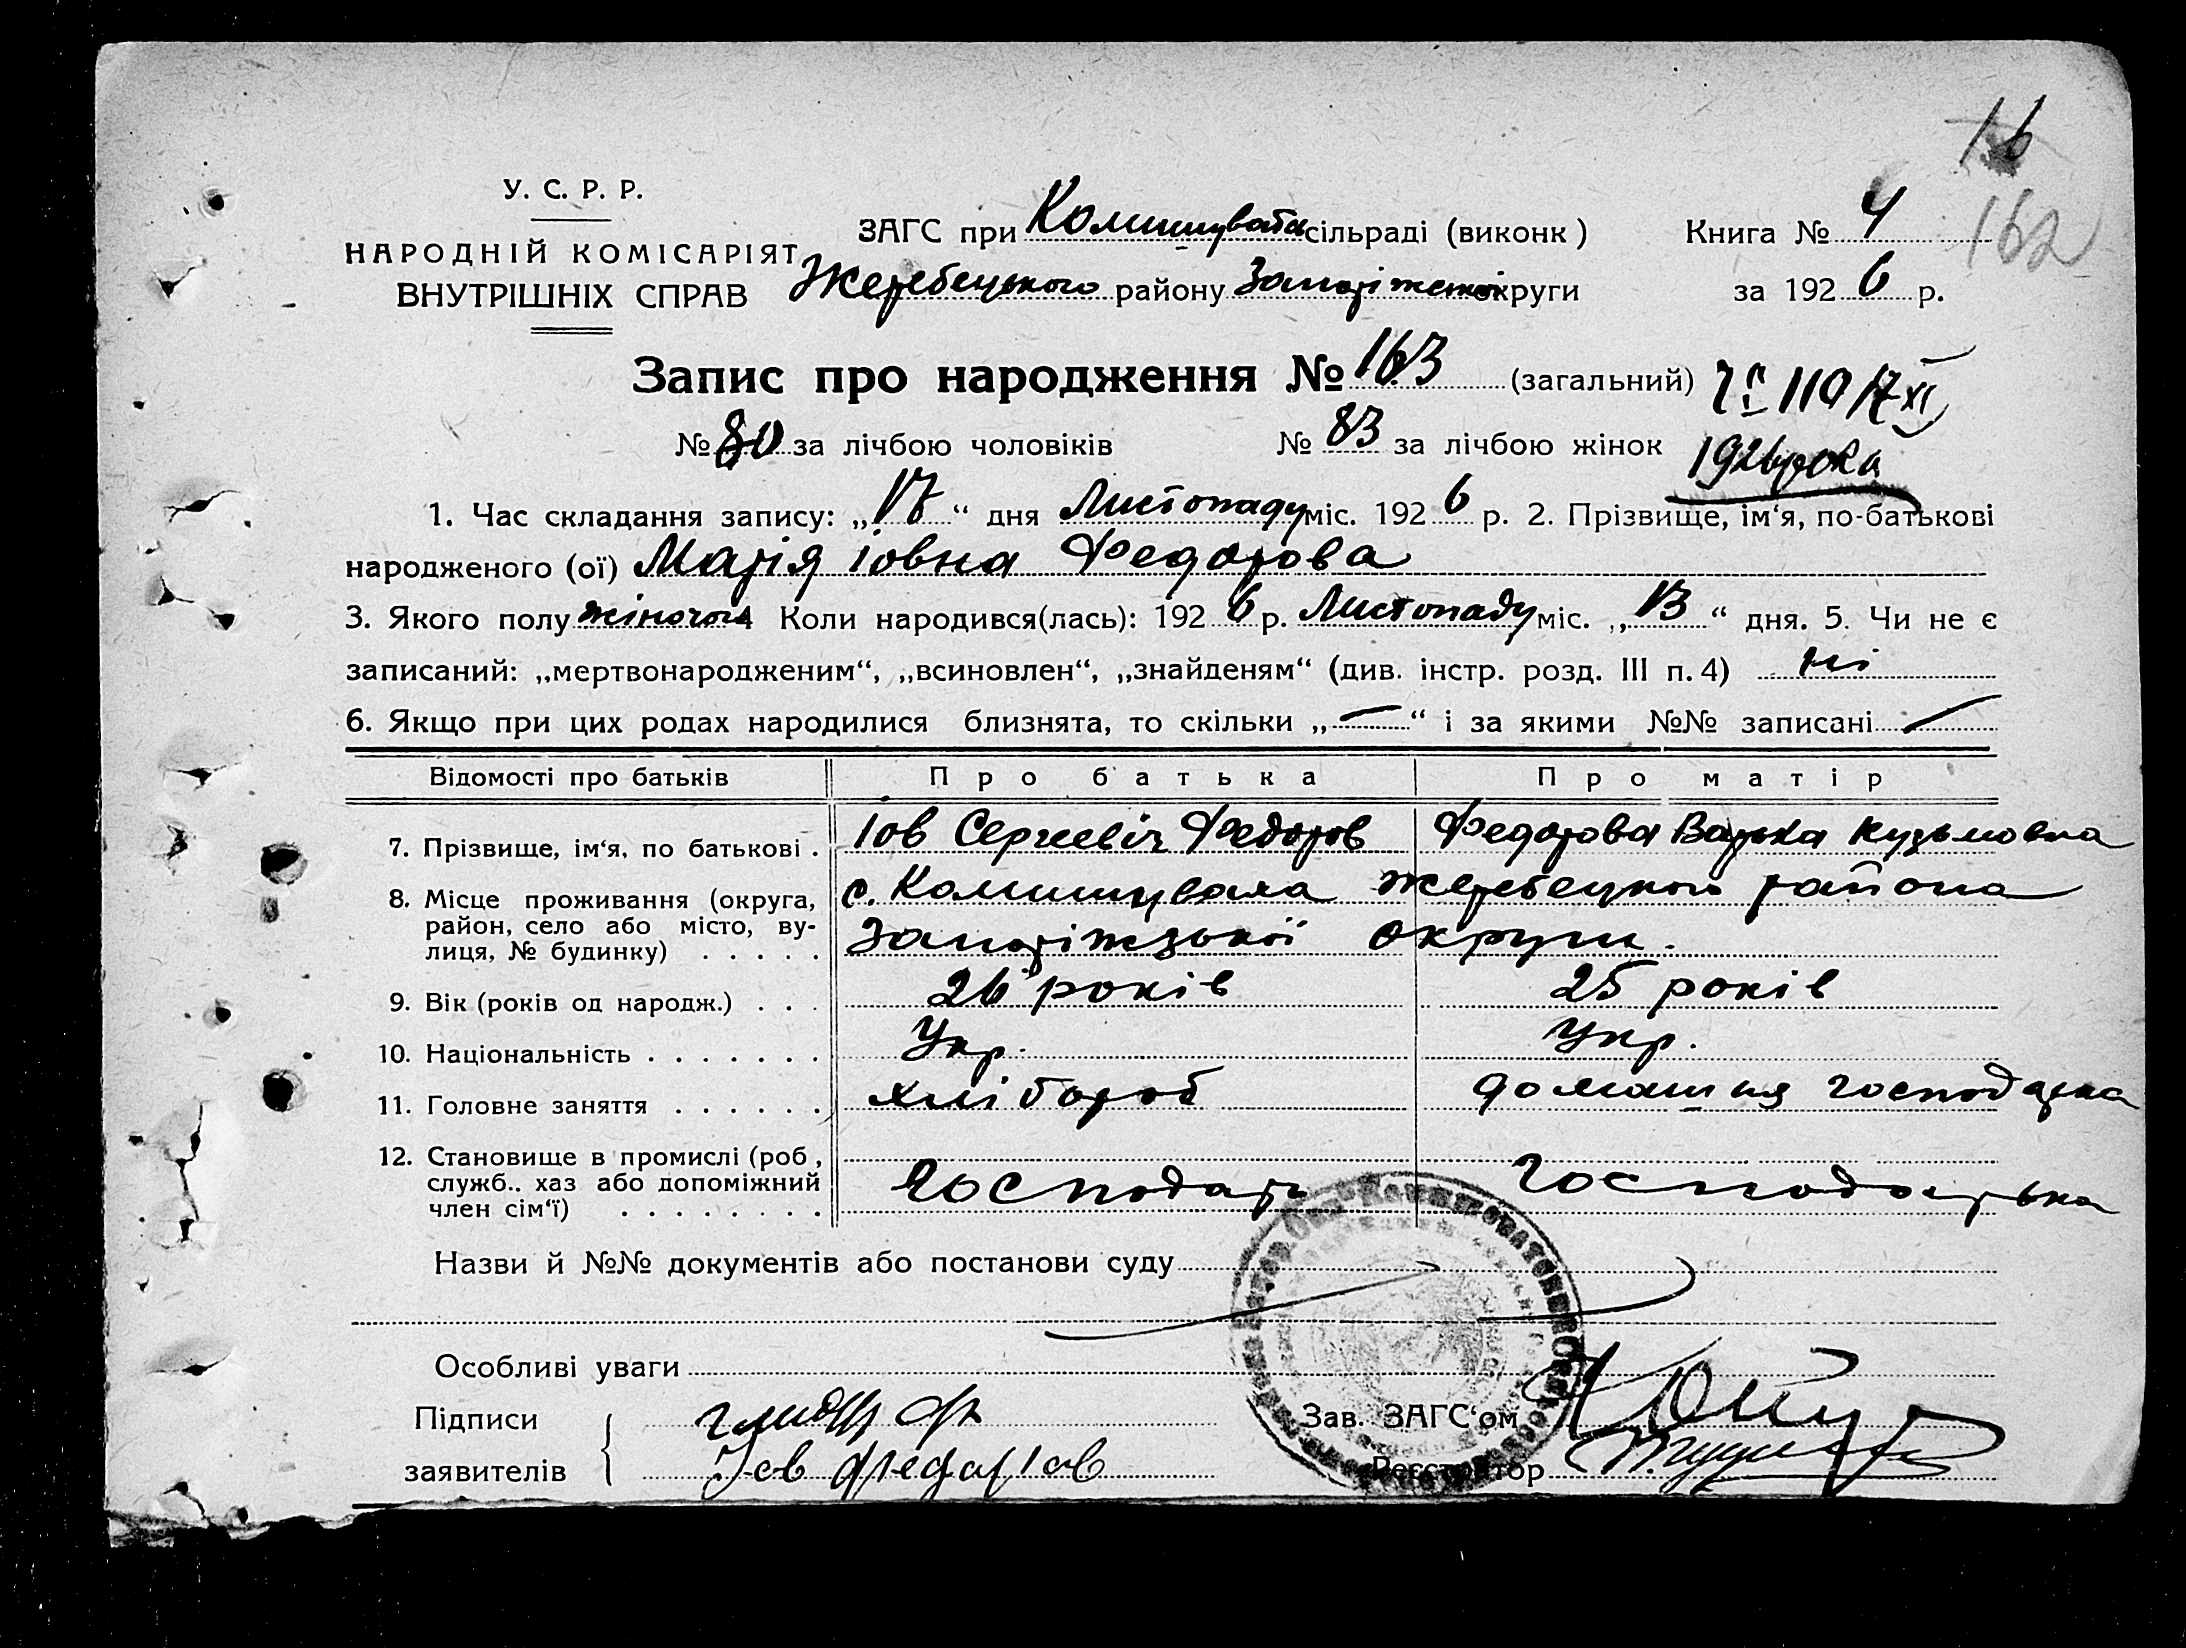 16
162
У. С. Р. Р.
НАРОДНІЙ КОМІСАРІЯТ
ВНУТРІШНІХ СПРАВ
ЗАГС при Комишувать сільраді (виконк)
Жеребецького району Запоріжської округи
Книга № 4
за 1926 р.
Запис про народження № 163 (загальний)
110 17/XI
1926 рока
№ 80 за лічбою чоловіків № 83 за лічбою жінок
1. Час складання запису: „17“ дня Листопаду міс. 1926 р. 2. Прізвище, ім‘я, по-батькові
народженого (ої) Марія Іовна Федорова
3. Якого полу жіночого 4 Коли народився(лась): 1926 р. Листопаду міс. „13“ дня. 5. Чи не є
записаний: „мертвонародженим“, „всиновлен“, „знайденям“ (див. інстр. розд. III п. 4) ні
6. Якщо при цих родах народилися близнята, то скільки „—“ і за якими №№ записані —
Відомості про батьків Про батька Про матір
7. Прізвище, ім‘я, по батькові . Іов Сергиевіч Федоров Федорова Варька Кузьмовна
8. Місце проживання (округа, район, село або місто, вулиця, № будинку) . . . . . с. Комишуваха Жеребецького района
Запоріжзької округи.
9. Вік (років од народж.) . . . 26 років 25 років
10. Національність . . . . . . . Укр. Укр.
11. Головне заняття . . . . . . хлібороб домашня господарка
12. Становище в промислі (роб, служб.. хаз або допоміжний член сім‘ї) . . . . . . . . Господарь Господарька
Назви й №№ документів або постанови суду
Особливі уваги
Підписи
заявителів Іов Федоров
Зав. ЗАГС‘ом
Реєстратор